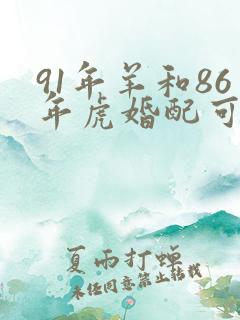 91年羊和86
年虎婚配可
夏雨打蝉
未经同意禁止转载